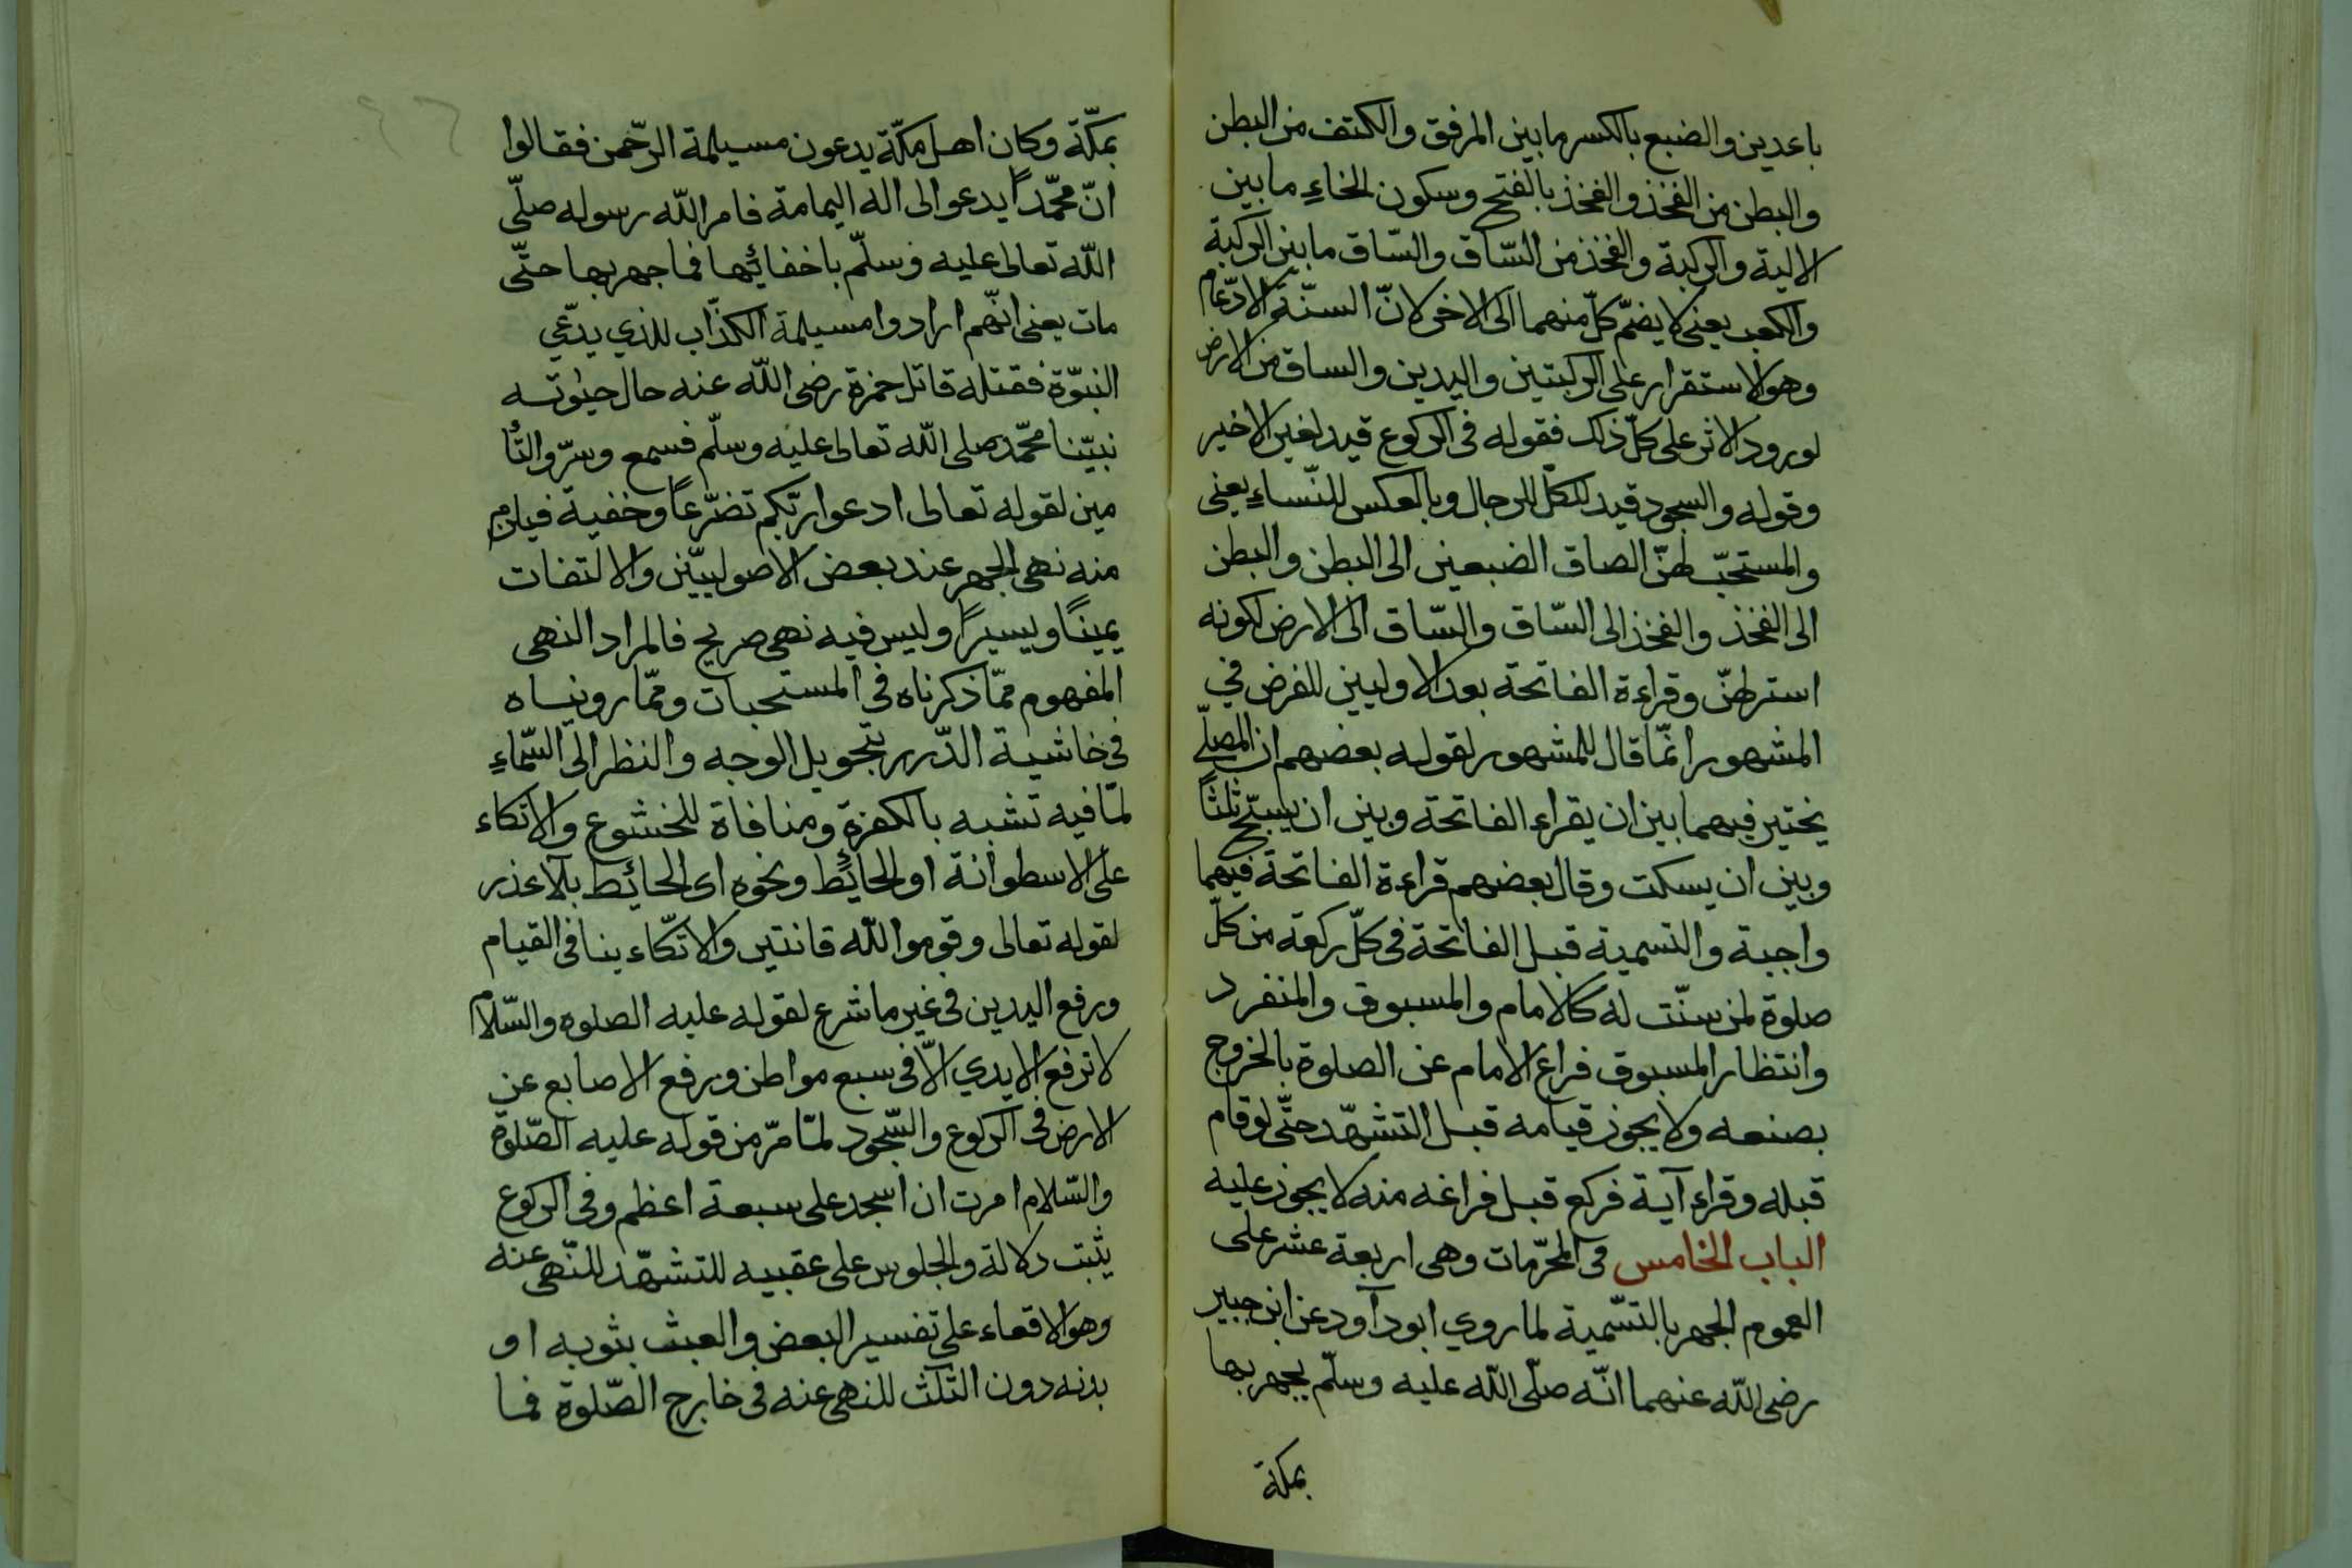 باعدين والضبع بالكسر ما بين المرفق والكتف من البطن
والبطن من الفخذ والفخذ بالفتح وسكون الخاء ما بين
الالية والركبة والفخذ من السّاق والسّاق ما بين الركبة
والكعب يعنى لا يضمّ كلّ منهما الى الاخر لانّ السنّة الادّعام
وهو الاستقرار على الركبتين واليدين والساق من الارض
لورود الاثر على كلّ ذلك فقوله فى الركوع قيد لغير الاخير
وقوله والسجود قيد للكلّ للرجال وبالعكس للنّساء يعنى
والمستحبّ لهنّ الصاق الضبعين الى البطن والبطن
الى الفخذ والفخذ الى السّاق والسّاق الى الارض لكونه
استر لهنّ وقراءة الفاتحة بعد الاوليين للفرض في
المشهور انّما قال للمشهور لقوله بعضهم ان المصلّي
يختير فيهما بين ان يقراء الفاتحة وبين ان يسبّح ثلثاً
وبين ان يسكت وقال بعضهم قراءة الفاتحة فيهما
واجبة والتسمية قبل الفاتحة فى كلّ ركعة من كلّ
صلوة لمن سنّت له كالامام والمسبوق والمنفرد
وانتظار المسبوق فراغ الامام عن الصلوة بالخروج
بصنعه ولا يجوز قيامه قبل التشهّد حتّى لو قام
قبله وقراء آية فركع قبل فراغه منه لا يجوز عليه
الباب الخامس فى المحرّمات وهى اربعة عشر على
العموم الجهر بالتسّمية لما روي ابو دآود عن ابن جبير
رضى اللّه عنهما انّه صلّى اللّه عليه وسلّم يجهر بها
بمكة
بمكّة وكان اهل مكّة يدعون مسيلمة الرّحمن فقالوا
انّ محمّداً يدعو الى اله اليمامة فامر اللّه رسوله صلّى
اللّه تعالى عليه وسلّم باخفائها فما جهر بها حتّى
مات يعنى انّهم ارادوا مسيلمة الكذّاب للذي يدّعي
النبوّة فقتله قاتل حمزة رضى اللّه عنه حال حيٰوته
نبيّنا محمّد صلى اللّه تعالى عليه وسلّم فسمع وسرّ والتّأ
مين لقوله تعالى ادعوا ربّكم تضرّعاً وخفية فيلزم
منه نهى الجهر عند بعض الاصوليیّن والالتفات
يميناً ويسيراً وليس فيه نهى صريح فالمراد النهى
المفهوم ممّا ذكرناه فى المستحبات وممّا رويناه
فى خاشية الدّرر بتحويل الوجه والنظر الى السّماء
لما فيه تشبه بالكفرة ومنافاة للخشوع والاتكاء
على الاسطوانة او الحائط ونحوه اى الحائط بلا عذر
لقوله تعالى وقوموا للّه قانتين والاتكّاء ينافى القيام
ورفع اليدين فى غير ما شرع لقوله عليه الصلوة والسّلام
لا ترفع الايدي الّا فى سبع مواطن ورفع الاصابع عن
الارض فى الركوع والسّجود لما مرّ من قوله عليه الصّلوة
والسّلام امرت ان اسجد على سبعة اعظم وفى الركوع
يثبت دلالة والجلوس على عقبيه للتشهّد للنّهى عنه
وهو الاقعاء على تفسير البعض والعبث بثوبه او
بدنه دون الثلث للنهى عنه فى خارج الصّلوة فما